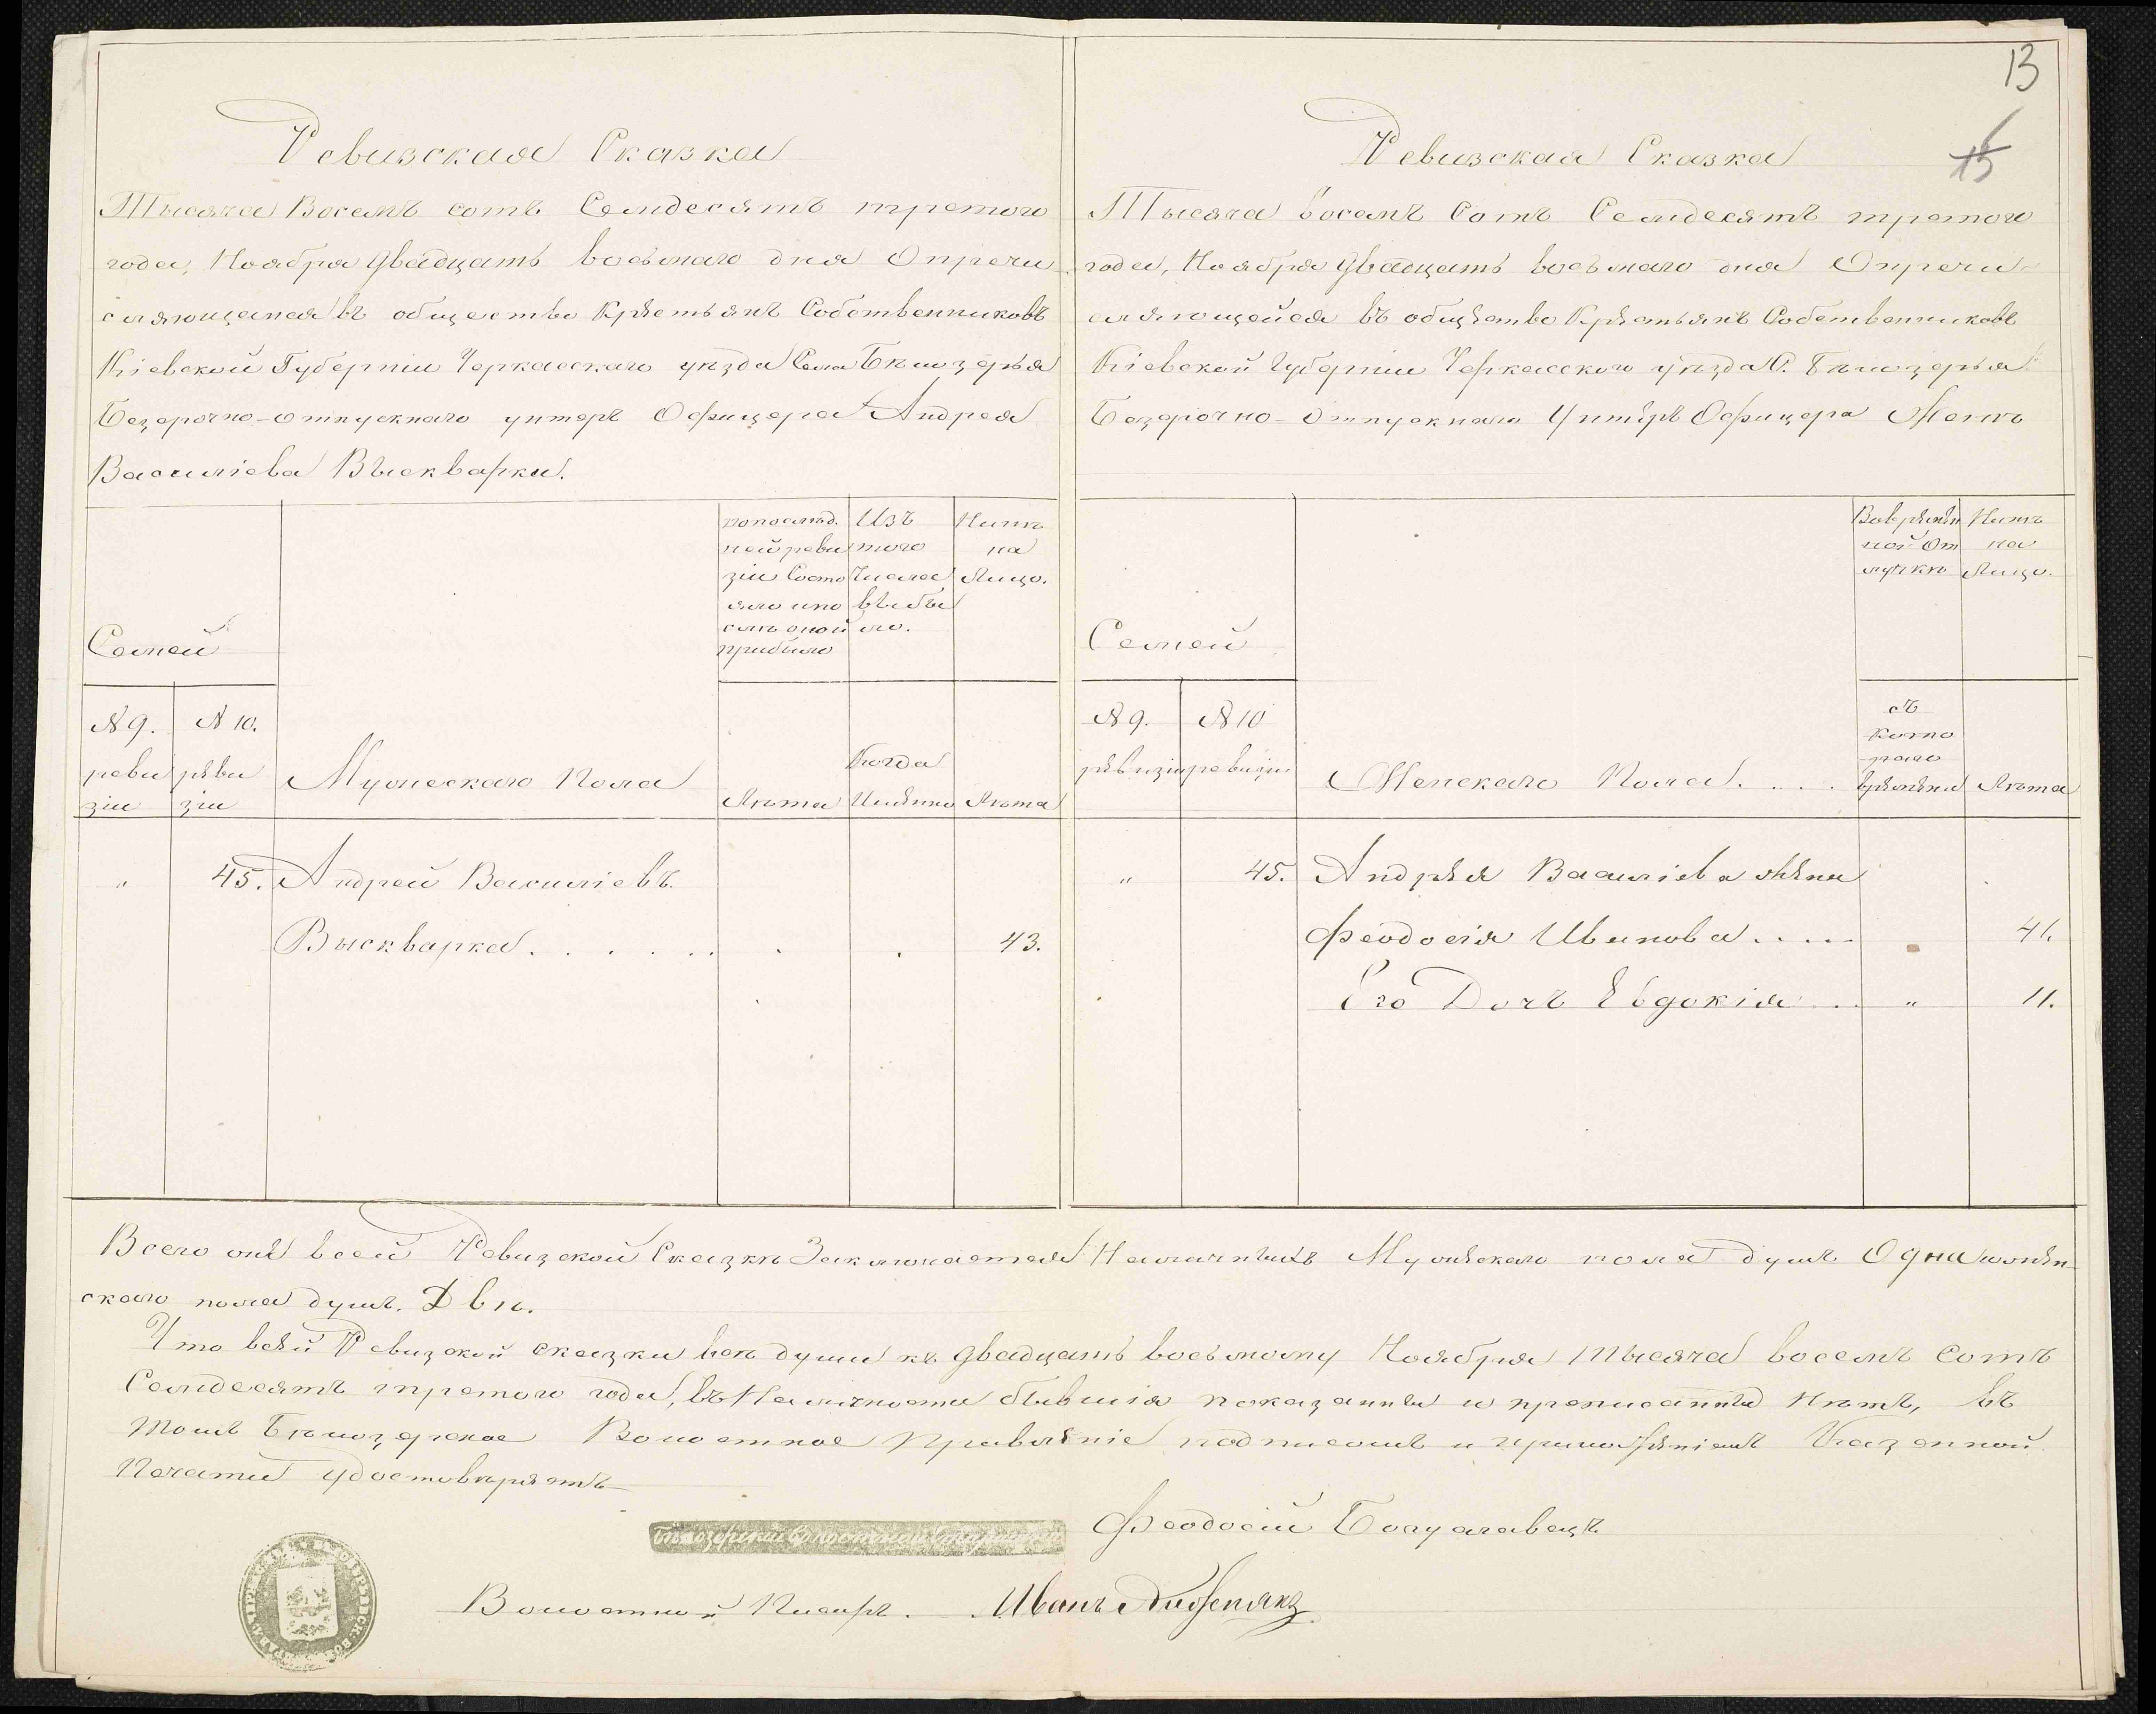 13
15
Ревизская Сказка
Тысяча Восемь сотъ Семдесятъ третого
года, Ноября двадцать восьмаго дня О пречи-
сляющемся въ общество Крестьянъ Собственниковъ
Кіевской Губерніи Черкасскаго уѣзда Села Бѣлозерья
Безсрочно-отпускнаго унтеръ Офицера Андрея
Василіева Выскварки.
Семей
№ 9. ревизіи
№ 10. ревизіи
Мужескаго Пола
по послѣд.
ней реви
зіи Состо
яло и по
слѣ оной
прибыло
Лѣта
Изъ
того
Числа
выбы
ло.
Когда
Имянно
Нынѣ
на
Лицо.
Лѣта
" 45. Андрей Василіевъ
Выскварка . . . . . . . . 43.
Ревизская Сказка
Тысяча восемь Сотъ Семдесятъ третого
года, Ноября двадцать восьмаго дня О пречи-
сляющейся въ общество Крестьянъ Собственниковъ
Кіевской Губерніи Черкасскаго уѣзда С. Бѣлозерья
Безсрочно-отпускнаго Унтеръ Офицера Женѣ
Семей
№ 9. ревизіи
№ 10 ревизіи
Женскаго Пола. . . .
Во времян
ной От
лучкѣ
съ
кото
раго
времяни
Нынѣ
на
Лицо.
Лѣта
" 45. Андрея Василіева жена
Феодосія Иванова . . . . 41.
Его Дочь Евдокія . . . " 11.
Всего въ сей Ревизской Сказкѣ Заключается Наличныхъ Мужескаго пола душъ Одна женс-
скаго пола душъ. Двѣ.
Что в сей Ревизской сказки всѣ души къ двадцать восьмому Ноября тысяча восемь сотъ
Семдесятъ третого года, въ Наличности бывшія показанны и прописанныхъ нѣтъ, въ
томъ Бѣлозерское Волостное Правленіе подписомъ и приложеніемъ Казенной
Печати удостовѣряетъ
Бѣлозерскій Волостной Старшина Феодосій Богуславецъ
Волостной Писарь. Иванъ